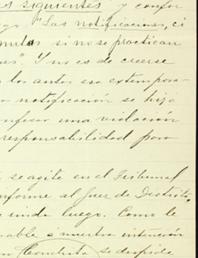 siguientes y confor
"Las notificaciones, ci
si no se practican
Y no es de creerse
los autos en extempora
notificación se hijo
una violación
responsabilidad para
se agite en el Tribunal
informe al Juez de Distrito
luego. Como le
a nuestra intención
se despide